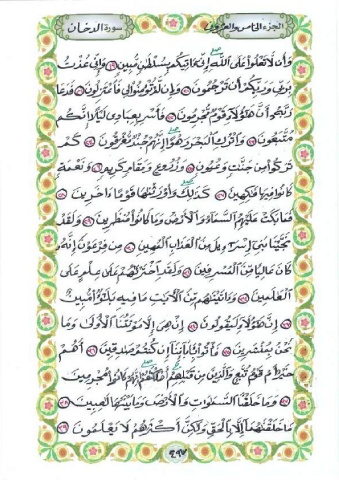 الجزء الخامس والعشرون
سورة الدخان
وَأَن لَّا تَعْلُوا۟ عَلَى ٱللَّهِ إِنِّىٓ ءَاتِيكُم بِسُلْطَٰنٍ مُّبِينٍ ١٩ وَإِنِّى عُذْتُ
بِرَبِّى وَرَبِّكُمْ أَن تَرْجُمُونِ ٢٠ وَإِن لَّمْ تُؤْمِنُوا۟ لِى فَٱعْتَزِلُونِ ٢١ فَدَعَا
رَبَّهُۥٓ أَنَّ هَٰٓؤُلَآءِ قَوْمٌ مُّجْرِمُونَ ٢٢ فَأَسْرِ بِعِبَادِى لَيْلًا إِنَّكُم
مُّتَّبَعُونَ ٢٣ وَٱتْرُكِ ٱلْبَحْرَ رَهْوًا إِنَّهُمْ جُندٌ مُّغْرَقُونَ ٢٤ كَمْ
تَرَكُوا۟ مِن جَنَّٰتٍ وَعُيُونٍ ٢٥ وَزُرُوعٍ وَمَقَامٍ كَرِيمٍ ٢٦ وَنَعْمَةٍ
كَانُوا۟ فِيهَا فَٰكِهِينَ ٢٧ كَذَٰلِكَ وَأَوْرَثْنَٰهَا قَوْمًا ءَاخَرِينَ ٢٨
فَمَا بَكَتْ عَلَيْهِمُ ٱلسَّمَآءُ وَٱلْأَرْضُ وَمَا كَانُوا۟ مُنظَرِينَ ٢٩ وَلَقَدْ
نَجَّيْنَا بَنِىٓ إِسْرَٰٓءِيلَ مِنَ ٱلْعَذَابِ ٱلْمُهِينِ ٣٠ مِن فِرْعَوْنَ إِنَّهُۥ
كَانَ عَالِيًا مِّنَ ٱلْمُسْرِفِينَ ٣١ وَلَقَدِ ٱخْتَرْنَٰهُمْ عَلَىٰ عِلْمٍ عَلَى
ٱلْعَٰلَمِينَ ٣٢ وَءَاتَيْنَٰهُم مِّنَ ٱلْءَايَٰتِ مَا فِيهِ بَلَٰٓؤٌا۟ مُّبِينٌ
٣٣ إِنَّ هَٰٓؤُلَآءِ لَيَقُولُونَ ٣٤ إِنْ هِىَ إِلَّا مَوْتَتُنَا ٱلْأُولَىٰ وَمَا
نَحْنُ بِمُنشَرِينَ ٣٥ فَأْتُوا۟ بِـَٔابَآئِنَآ إِن كُنتُمْ صَٰدِقِينَ ٣٦ أَهُمْ
خَيْرٌ أَمْ قَوْمُ تُبَّعٍ وَٱلَّذِينَ مِن قَبْلِهِمْ أَهْلَكْنَٰهُمْ إِنَّهُمْ كَانُوا۟ مُجْرِمِينَ
٣٧ وَمَا خَلَقْنَا ٱلسَّمَٰوَٰتِ وَٱلْأَرْضَ وَمَا بَيْنَهُمَا لَٰعِبِينَ ٣٨
مَا خَلَقْنَٰهُمَآ إِلَّا بِٱلْحَقِّ وَلَٰكِنَّ أَكْثَرَهُمْ لَا يَعْلَمُونَ ٣٩
٤٩٧